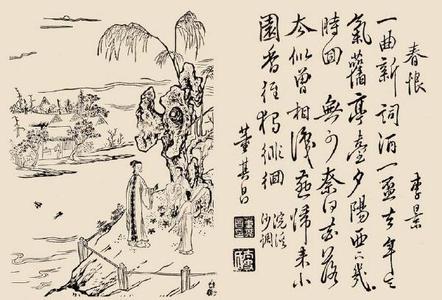 春恨
李景
一曲新詞酒一盃去年天
氣舊亭臺夕陽西下幾
時回 無可奈何花落
去似曾相識燕歸來小
園香徑獨徘徊
浣溪
沙調
董其昌